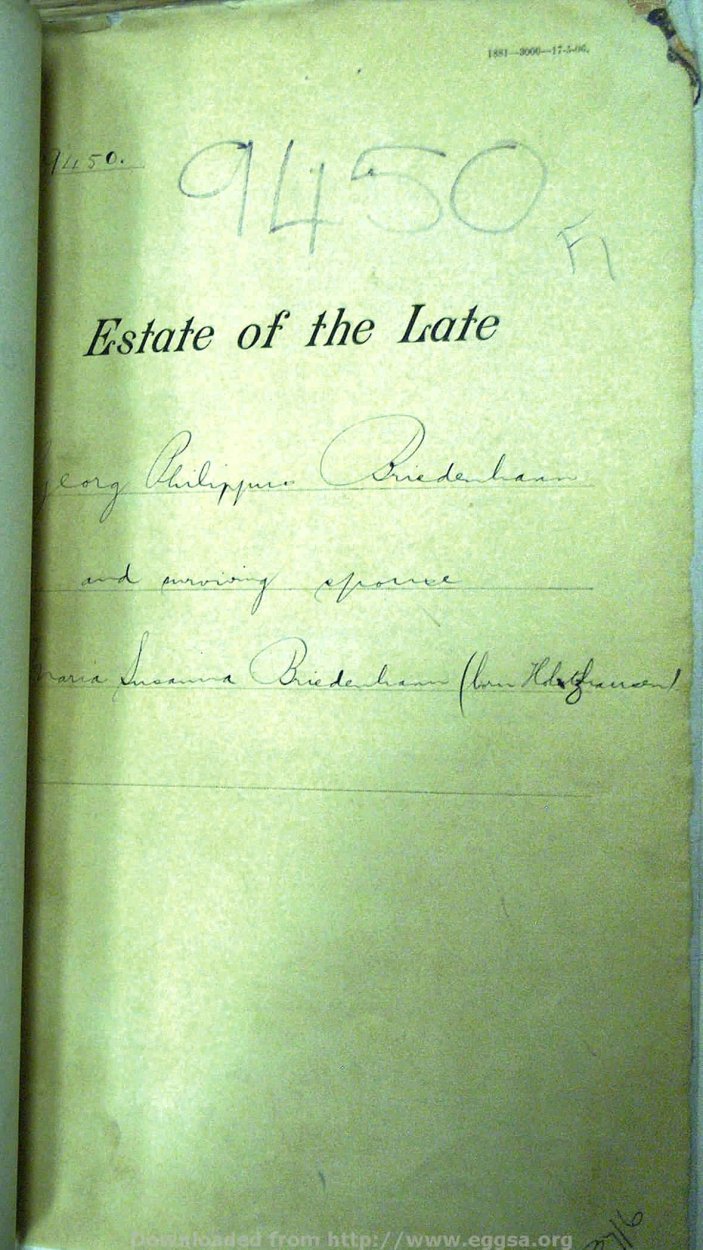 1881—3000—17-5-06.
9450.
9450
F1
Estate of the Late
Georg Philippus Briedenhann
and surviving spouse
Maria Susanna Briedenhann (born Holtzhausen)
Downloaded from http://www.eggsa.org